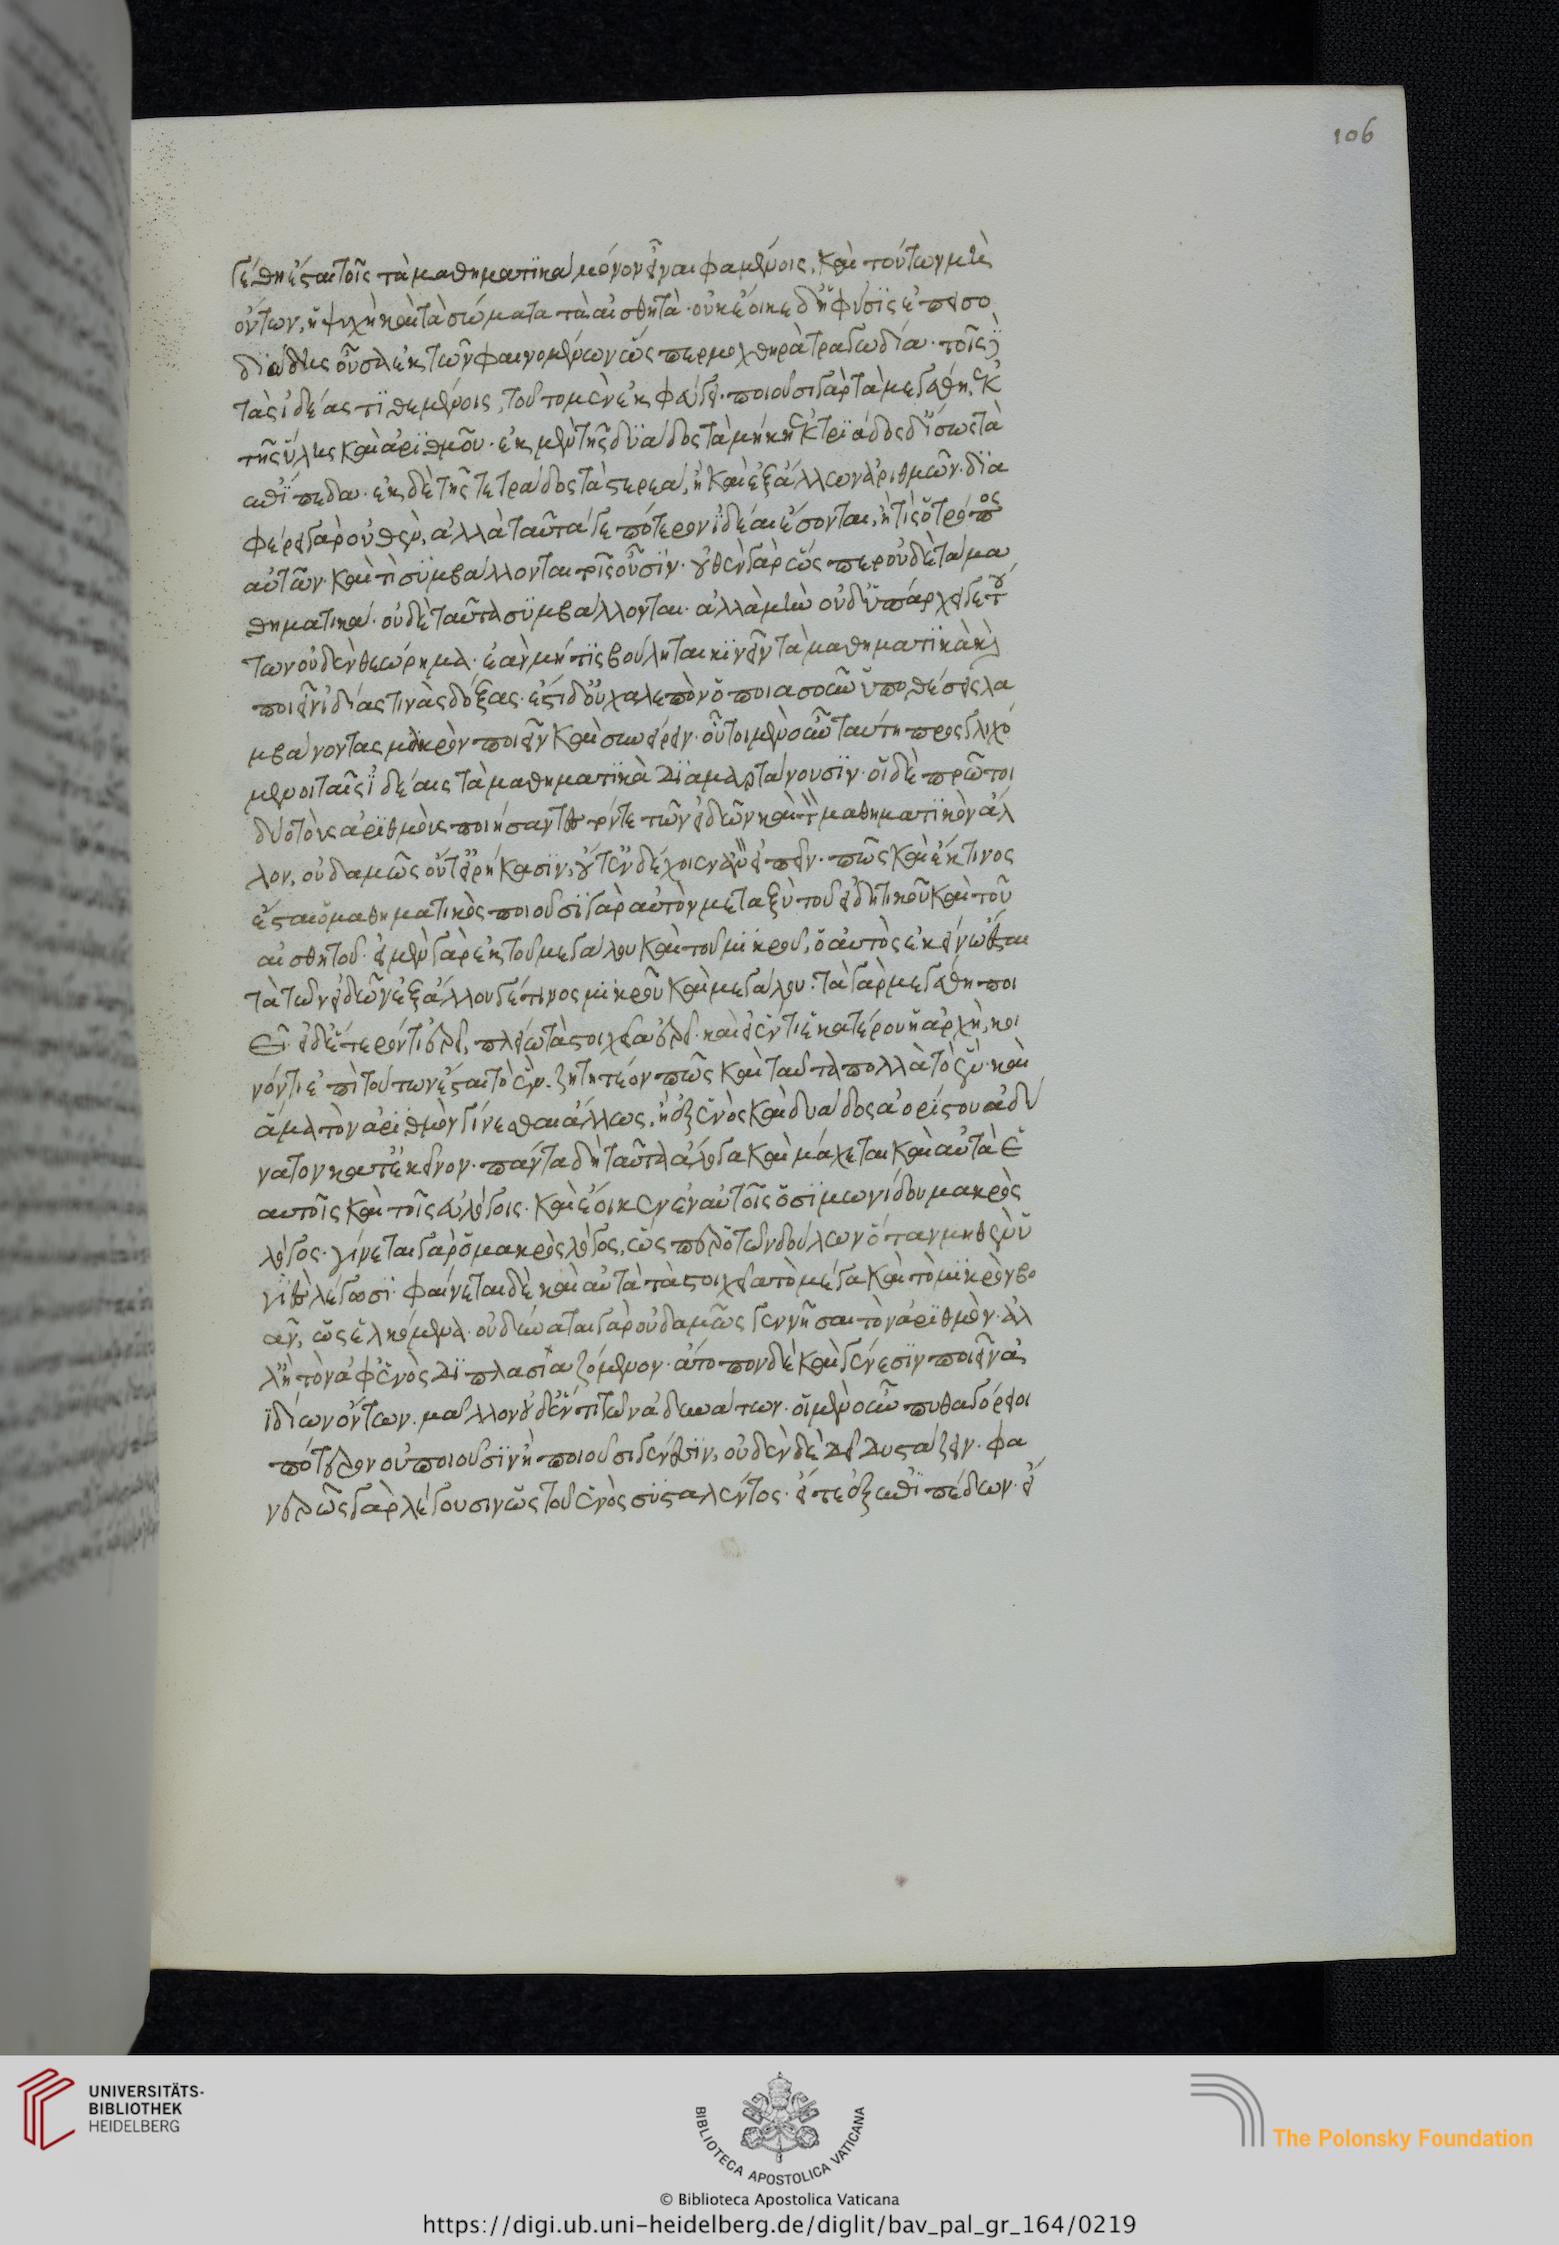 γέθη ἔσται τοῖς τὰ μαθηματϊκὰ μόνον εἶναι φαμένοις, καὶ τούτων μὴ
ὄντων, ἡ ψυχὴ καὶ τὰ σώματα τὰ αἰσθητὰ· οὐκ ἔοικε δ' ἡ φύσϊς ἐπεισο
διώδης οὖσα ἐκ τῶν φαινομένων ὥς περ μοχθηρὰ τραγωδία· τοῖς δὲ
τὰς ἰδέας τϊθεμένοις, τοῦτο μὲν ἐκφεύγει· ποιοῦσι γὰρ τὰ μεγέθη ἐκ
τῆς ὕλης καὶ ἀρϊθμοῦ· ἐκ μὲν τῆς δϋάδος τὰ μήκη ἐκ τρϊάδος δ' ἴσως τὰ
ἐπίπεδα· ἐκ δὲ τῆς τετράδος τὰ στερεά, ἢ καὶ ἐξ ἄλλων ἀριθμῶν· δϊα
φέρει γὰρ οὐθὲν, ἀλλὰ ταῦτα γε πότερον ἰδέαι ἔσονται, ἢ τὶς ὁ τρόπος
αὐτῶν· καὶ τὶ συμβάλλονται τοῖς οὖσϊν· οὐθὲν γὰρ ὥς περ οὐδὲ τὰ μα
θηματικά· οὐδὲ ταῦτα συμβάλλονται· ἀλλὰ μὴν οὐδ' ὑπάρχει γε τού
των οὐδὲν θεώρημα· ἐὰν μή τϊς βούληται κϊνεῖν τὰ μαθηματϊκὰ καὶ
ποιεῖν ἰδίας τινὰς δόξας· ἔστι δ' οὐ χαλεπὸν ὁποιασοῦν ὑποθέσεις λα
μβάνοντας μακρὸν ποιεῖν καὶ συνείρειν· οὗτοι μὲν οὖν ταύτη προς γλιχό
μενοι ταῖς ἰδέαις τὰ μαθηματϊκὰ διαμαρτάνουσϊν· οἱ δὲ πρῶτοι
δύο τοὺς ἀρϊθμοὺς ποιήσαντες τόν τε τῶν εἰδῶν καὶ τὸν μαθηματϊκὸν ἄλ
λον, οὐδαμῶς οὔτ' εἰρήκασϊν, οὔτ' ἔχοιεν ἂν εἰπεῖν· πῶς καὶ ἐκ τινος
ἔσται ὁ μαθηματικὸς ποιοῦσϊ γὰρ αὐτὸν μεταξὺ τοῦ εἰδητικοῦ καὶ τοῦ
αἰσθητοῦ· εἰ μὲν γὰρ ἐκ τοῦ μεγάλου καὶ τοῦ μϊκροῦ, ὁ αὐτὸς ἐκείνω ἔσται
τὰ τῶν εἰδῶν ἐξ ἄλλου δέ τινος μϊκροῦ καὶ μεγάλου· τὰ γὰρ μεγέθη ποι
εῖ· εἰ δ' ἕτερόν τι ἐρεῖ, πλείω τὰ στοιχεῖα ἐρεῖ· καὶ εἰ ἕν τι ἑκατέρου ἡ ἀρχὴ, κοι
νόν τι ἐπὶ τούτων ἔσται τὸ ἕν· ζητητέον πῶς καὶ ταῦτα πολλὰ τὸ ἓν· καὶ
ἅμα τὸν ἀρϊθμὸν γίνεσθαι ἄλλως, ἢ ἐξ ἑνὸς καὶ δυάδος ἀορίστου ἀδύ
νατον κατ' ἐκεῖνον· πάντα δὴ ταῦτα ἄλογα καὶ μάχεται καὶ αὐτὰ ἑ
αυτοῖς καὶ τοῖς εὐλόγοις· καὶ ἔοικεν ἐν αὐτοῖς ὁ σϊμωνίδου μακρὸς
λόγος· γίνεται γὰρ ὁ μακρὸς λόγος, ὥς περ ὁ τῶν δούλων ὅταν μηθὲν ὑ
γϊὲς λέγωσϊ· φαίνεται δὲ καὶ αὐτὰ τὰ στοιχεῖα τὸ μέγα καὶ τὸ μϊκρὸν βο
ᾶν, ὡς ἑλκόμενα· οὐ δύναται γὰρ οὐδαμῶς γεννῆσαι τὸν ἀρϊθμὸν· ἀλ
λ' ἢ τὸν ἀφ' ἑνὸς διπλασϊαζόμενον· ἄτοπον δὲ καὶ γένεσϊν ποιεῖν ἀ
ϊδίων ὄντων. μᾶλλον δ' ἕν τι τῶν ἀδυνάτων· οἱ μὲν οὖν πυθαγόρειοι
πότερον οὐ ποιοῦσϊν ἢ ποιοῦσι γένεσϊν, οὐδὲν δεῖ διστάζειν· φα
νερῶς γὰρ λέγουσιν ὡς τοῦ ἑνὸς συσταθέντος· εἴτε ἐξ ἐπϊπέδων· εἴ
106
UNIVERSITÄTS-
BIBLIOTHEK
HEIDELBERG
BIBLIOTECA APOSTOLICA VATICANA
The Polonsky Foundation
© Biblioteca Apostolica Vaticana
https://digi.ub.uni-heidelberg.de/diglit/bav_pal_gr_164/0219